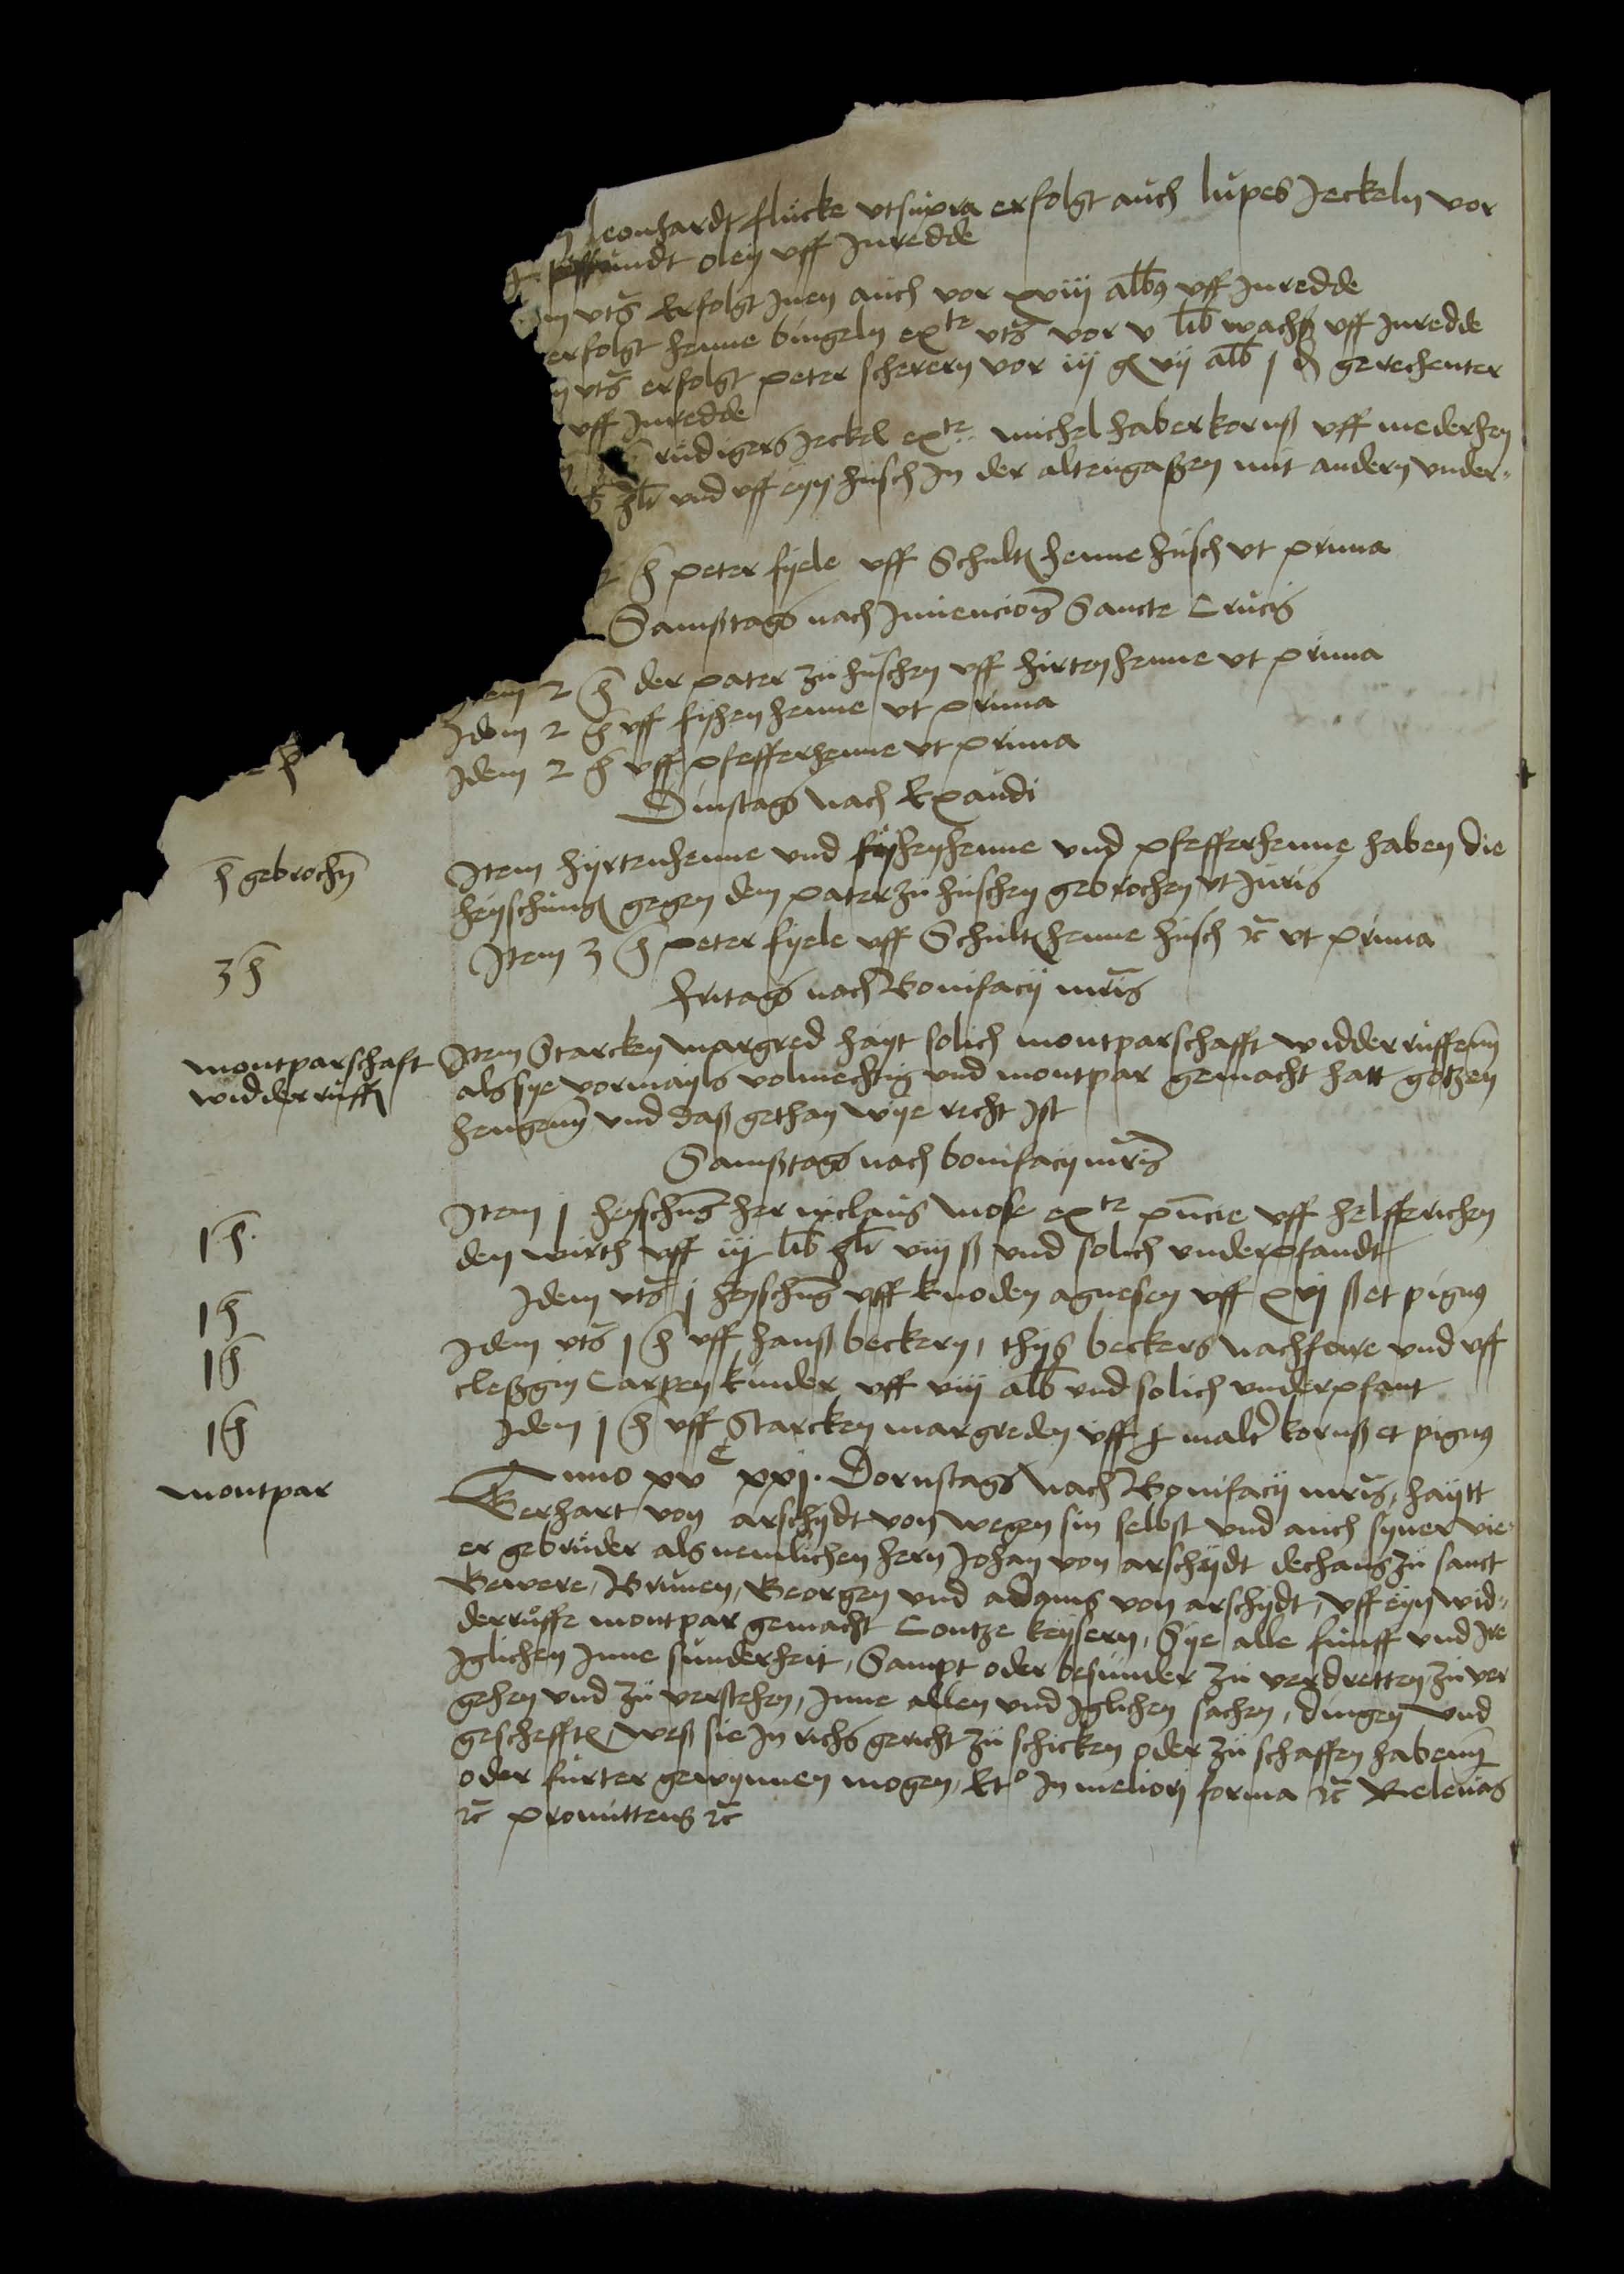 leonhardt flucke vtsupra erfolgt auch lupes Jeckeln vor
oley vff Inredde
vts Erfolgt Inen auch vor xviii albus vff Inredde
erfolgt henne bingeln exte vts vor v lib wachß vff Inredde
vts erfolgt peter scherern vor iij g vij alb j d gerechenter
vff Inredde
rudigers Jeckel exte michel haberkornß vff niederhen
vnd vff eyn husch In der altengaßen mit andern vnder-
2 h peter fyele vff Schultz henne husch vt prima
Sampstags nach Invencionis Sancte Crucis
Item 2 h der pater zu huschen vff hirten henne vt prima
Idem 2 h vff fyßen henne vt prima
Idem 2 h vff pfefferhenne vt prima
Dinstags nach Exaudi
h gebrochen
Item hyrtenhenne vnd fyßenhenne vnd pfefferhenne haben die
heyschung gegen dem pater zu huschen gebrochen vt Juris
3 h
Item 3 h peter fyele vff Schultz henne husch etc vt prima
fritags nach Bonifacij mris
montparschaft
widderruffen
Item Starcken margred hayt solich montparschafft widderruffenn
als sye vormayls volmechtig vnd montpar gemacht hatt gotzen
hengenn vnd daß gethan wye recht Ist
Sampstags nach bonifacij mris
1 h
Item j heyschung her niclaus mose exte pncie vff helfferichen
den wirth vff iij lib glt viij ß vnd solich vnderpfandt
1 h
Idem vts j heyschung vff knoden agnesen vff xvj ß et pignus
1 h
Idem vts j h vff hanß beckern, thijs beckers nachfare vnd vff
cleßgin Carpen kinder vff viij alb vnd solich vnderpfant
1 h
Idem j h vff Starcken margreden vff malter kornß et pignus
montpar
Anno xvc xxj. Dornstags nach Bonifacij mris, haytt
Gerhart von arschydt von wegen sin selbst vnd auch syner vie-
er gebruder als nemlichen hern Johan von arschydt dechans zu sanct
Gewere, Brunen, Georgen vnd adams von arschydt, vff eyn wid-
derruffe montpar gemacht Contze keysern, Sye alle funff vnd Ire
Iglichen Inne sunderheit, Sampt oder besunder zu verdretten zu ver
gehen vnd zu verstehen, Inne allen vnd Iglichen sachen, dingen vnd
gescheffte, weß sie In richs gericht zu schicken oder zu schaffen habenn
oder furter gewynnen mogen, In meliori forma etc Relevans
etc promittens etc